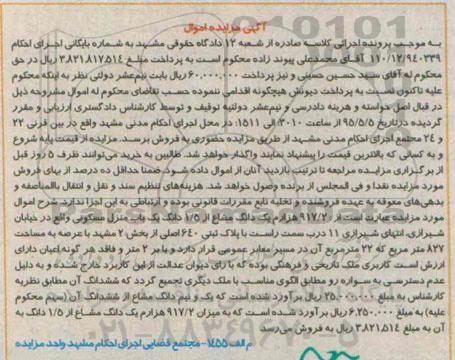 آگهی مزایده اموال
به موجب پرونده اجرائی کلاسه صادره از شعبه ۱۲ دادگاه حقوقی مشهد به شماره بایگانی اجرای احکام
۱۱۰/۱۲/۹۴۰۳۳۹ آقای محمدعلی پیوند زاده محکوم است به پرداخت مبلغ ۳.۸۲۱.۸۱۷.۵۱۴ ریال در حق
محکوم له آقای سید حسین حسینی و نیز پرداخت ۶۰.۰۰۰.۰۰۰ ریال بابت نیم‌عشر دولتی نظر به اینکه محکوم
علیه تاکنون نسبت به پرداخت دیونش هیچگونه اقدامی ننموده حسب تقاضای محکوم له اموال مشروحه ذیل
در قبال اصل خواسته و هزینه دادرسی و نیم‌عشر دولتیه توقیف و توسط کارشناس دادگستری ارزیابی و مقرر
گردیده درتاریخ ۹۵/۵/۵ از ساعت 10:30 الی 11:15 در محل اجرای احکام مدنی مشهد واقع در بین قرنی ۲۲
و ۲۴ مجتمع اجرای احکام مدنی مشهد از طریق مزایده حضوری به فروش برسد. مزایده از قیمت پایه شروع
و به کسانی که بالاترین قیمت را پیشنهاد نمایند واگذار خواهد شد. طالبین به خرید می‌توانند ظرف ۵ روز قبل
از برگزاری مزایده مراجعه تا ترتیب بازدید آنان از اموال داده شود. ضمنا حداقل ده درصد از بهای فروش
مورد مزایده نقدا و فی المجلس از برنده وصول خواهد شد. هزینه‌های تنظیم سند و نقل و انتقال بالمناصفه و
بدهی‌های معوقه به عهده فروشنده و تخلیه تابع مقررات قانونی بوده و ارتباطی به این اجرا ندارد. شرح اموال
مورد مزایده عبارت است از ۹۱۷/۲ هزارم یک دانگ مشاع از ۱/۵ دانگ یک باب منزل مسکونی واقع در خیابان
شیرازی، انتهای شیرازی ۱۱ درب سمت راست با پلاک ثبتی ۶۴۰ اصلی از بخش ۲ مشهد با عرصه به مساحت
۸۲۷ متر مربع که ۲۲ مترمربع آن در مسیر معابر عمومی قرار دارد و با بر ۲ متر و فاقد هر گونه اعیان دارای
ارزش است کاربری ملک تاریخی و فرهنگی بوده که با رای دیوان عدالت از این کاربرد خارج شده و به دلیل
عدم دسترسی به سواره رو مطابق الگوی مناسب با ملک دیگری تجمیع گردد که ششدانگ آن مطابق نظریه
کارشناس به مبلغ ۲۵.۰۰۰.۰۰۰.۰۰۰ ریال برآورد شده است که یک و نیم دانگ مشاع از ششدانگ آن (سهم محکوم
علیه) به مبلغ ۶.۲۵۰.۰۰۰.۰۰۰ ریال برآورد شده است که به میزان ۹۱۷/۲ هزارم یک دانگ مشاع از ۱/۵ دانگ به
مبلغ ۳.۸۲۱.۵۱۴ ریال به فروش می‌رسد
م الف ۱۴۵۵- مجتمع قضایی اجرای احکام مشهد واحد مزایده
۰۲۱-۸۸۳۴۹۶۷۰-۵